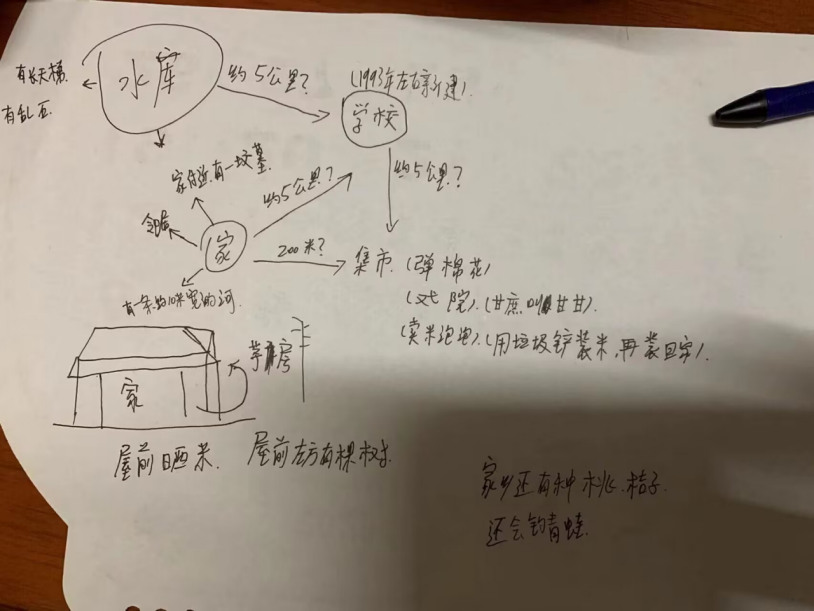 水库
有长天梯
有乱石
约5公里?
(1993年左右新建).
学校
约5公里?
家附近有一坟墓.
约5公里?
家
200米?
集市. (弹棉花)
(戏院). (甘蔗叫甘甘).
(卖米泡泡). (用垃圾铲装米,再装回家).
有一条约10米宽的河.
茅房
家
屋前晒米. 屋前左方有棵树.
家乡还有种桃.桔子.
还会钓青蛙.